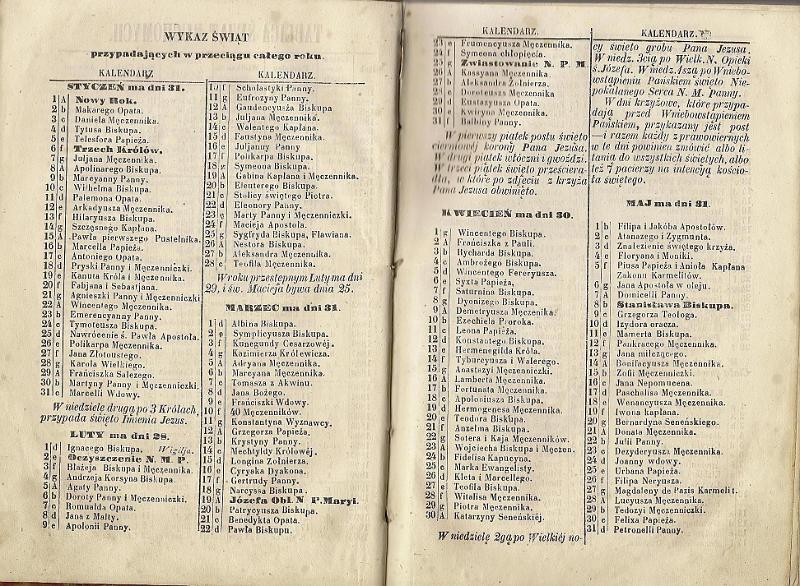 WYKAZ ŚWIĄT
przypadających w przeciągu całego roku.
KALENDARZ.
STYCZEŃ ma dni 31.
1 A Nowy Rok.
2 b Makarego Opata.
3 c Daniela Męczennika.
4 d Tytusa Biskupa.
5 e Telesfora Papieża.
6 f Trzech Królów.
7 g Juljana Męczennika.
8 A Apolinarego Biskupa.
9 b Marcyanny Panny.
10 c Wilhelma Biskupa.
11 d Palemona Opata.
12 e Arkadyusza Męczennika.
13 f Hilaryusza Biskupa.
14 g Szczęsnego Kapłana.
15 A Pawła pierwszego Pustelnika.
16 b Marcella Papieża.
17 c Antoniego Opata.
18 d Pryski Panny i Męczenniczki.
19 e Kanuta Króla i Męczennika.
20 f Fabjana i Sebastjana.
21 g Agnieszki Panny i Męczenniczki
22 A Wincentego Męczennika.
23 b Emerencyanny Panny.
24 c Tymoteusza Biskupa.
25 d Nawrócenie ś. Pawła Apostoła.
26 e Polikarpa Męczennika.
27 f Jana Złotoustego.
28 g Karola Wielkiego.
29 A Franciszka Salezego.
30 b Martyny Panny i Męczenniczki.
31 c Marcelli Wdowy.
W niedzielę drugą po 3 Królach,
przypada święto Imienia Jezus.
LUTY ma dni 28.
1 d Ignacego Biskupa. Wigilja.
2 e Oczyszczenie N. M. P.
3 f Błażeja Biskupa i Męczennika.
4 g Andrzeja Korsyna Biskupa.
5 A Agaty Panny.
6 b Doroty Panny i Męczenniczki.
7 c Romualda Opata.
8 d Jana z Matty.
9 e Apolonii Panny.
KALENDARZ.
10 f Scholastyki Panny.
11 g Eufrozyny Panny.
12 A Gaudencyusza Biskupa
13 b Juljana Męczennika.
14 c Walentego Kapłana.
15 d Faustyna Męczennika.
16 e Juljanny Panny
17 f Polikarpa Biskupa.
18 g Symeona Biskupa.
19 A Gabina Kapłana i Męczennika.
20 b Eleuterego Biskupa.
21 c Stolicy świętego Piotra.
22 d Eleonory Panny.
23 e Marty Panny i Męczenniczki.
24 f Macieja Apostoła.
25 g Sygfryda Biskupa, Flawiana.
26 A Nestora Biskupa.
27 b Aleksandra Męczennika.
28 c Teofila Męczennika.
W roku przestępnym Luty ma dni
29, i św. Macieja bywa dnia 25.
MARZEC ma dni 31.
1 d Albina Biskupa.
2 e Symplicyusza Biskupa.
3 f Kunegundy Cesarzowéj.
4 g Kazimierza Królewicza.
5 A Adryana Męczennika.
6 b Marcyana Męczennika.
7 c Tomasza z Akwinu.
8 d Jana Bożego.
9 e Franciszki Wdowy.
10 f 40 Męczenników.
11 g Konstantyna Wyznawcy.
12 A Grzegorza Papieża.
13 b Krystyny Panny.
14 c Mechtyldy Królowéj.
15 d Longina Żołnierza.
16 e Cyryaka Dyakona.
17 f Gertrudy Panny.
18 g Narcyssa Biskupa.
19 A Józefa Obl. N P. Maryi.
20 b Patrycyusza Biskupa.
21 c Benedykta Opata.
22 d Pawła Biskupa.
KALENDARZ.
23 e Frumencyusza Męczennika.
24 f Symeona chłopięcia.
25 g Zwiastowanie N. P. M
26 A Kassyana Męczennika
27 b Aleksandra Żołnierza.
28 c Doroteusza Męczennika
29 d Eustazyusza Opata.
30 e Kwiryna Męczennika.
31 f Balbiny Panny.
W pierwszy piątek postu święto
cierniowéj korony Pana Jezusa.
W drugi piątek włóczni i gwoździ.
W trzeci piątek święto prześciera-
dła, w które po zdjęciu z krzyża
Pana Jezusa obwinięto.
KWIECIEŃ ma dni 30.
1 g Wincentego Biskupa.
2 A Franciszka z Pauli.
3 b Rycharda Biskupa.
4 c Ambrożego Biskupa.
5 d Wincentego Fereryusza.
6 e Syxta Papieża.
7 f Saturnina Biskupa.
8 g Dyonizego Biskupa.
9 A Demetryusza Męczennika.
10 b Ezechiela Proroka.
11 c Leona Papieża.
12 d Konstantego Biskupa.
13 e Hermenegilda Króla.
14 f Tyburcyusza i Walerego.
15 g Anastazyi Męczenniczki.
16 A Lamberta Męczennika.
17 b Fortunata Męczennika.
18 c Apoloniusza Biskupa.
19 d Hermogenesa Męczennika.
20 e Teodora Biskupa.
21 f Anzelma Biskupa.
22 g Sotera i Kaja Męczenników.
23 A Wojciecha Biskupa i Męczen.
24 b Fidelisa Kapucyna.
25 c Marka Ewangelisty.
26 d Kleta i Marcellego.
27 e Teofila Biskupa.
28 f Witalisa Męczennika.
29 g Piotra Męczennika.
30 A Katarzyny Seneńskiéj.
W niedzielę 2gą po Wielkiéj no-
KALENDARZ.
cy święto grobu Pana Jezusa.
W niedz. 3cią po Wielk. N. Opieki
ś. Józefa. W niedz. 4szą po Wniebo-
wstąpieniu Pańskiém święto Nie-
pokalanego Serca N. M. Panny.
W dni krzyżowe, które przypa-
dają przed Wniebowstąpieniem
Pańskiém, przykazany jest post
i razem każdy z prawowiernych
w te dni powinien zmówić albo li-
tanią do wszystkich świętych, albo
też 7 pacierzy na intencją kościo-
ła świętego.
MAJ ma dni 31.
1 b Filipa i Jakóba Apostołów.
2 c Atanazego i Zygmunta.
3 d Znalezienie świętego krzyża.
4 e Floryana i Moniki.
5 f Piusa Papieża i Anioła Kapłana
Zakonu Karmelitów.
6 g Jana Apostoła w oleju.
7 A Domicelli Panny.
8 b Stanisława Biskupa.
9 c Grzegorza Teologa.
10 d Izydora oracza.
11 e Mamerta Biskupa.
12 f Pankracego Męczennika.
13 g Jana milczącego.
14 A Bonifacyusza Męczennika.
15 b Zofii Męczenniczki.
16 c Jana Nepomucena.
17 d Paschalisa Męczennika.
18 e Wenancyusza Męczennika.
19 f Iwona kapłana.
20 g Bernardyna Seneńskiego.
21 A Donata Męczennika.
22 b Julii Panny.
23 c Dezyderyusza Męczennika.
24 d Joanny wdowy.
25 e Urbana Papieża.
26 f Filipa Neryusza.
27 g Magdaleny de Pazis Karmelit.
28 A Lucyusza Męczennika.
29 b Teodozyi Męczenniczki.
30 c Felixa Papieża.
31 d Petronelli Panny.